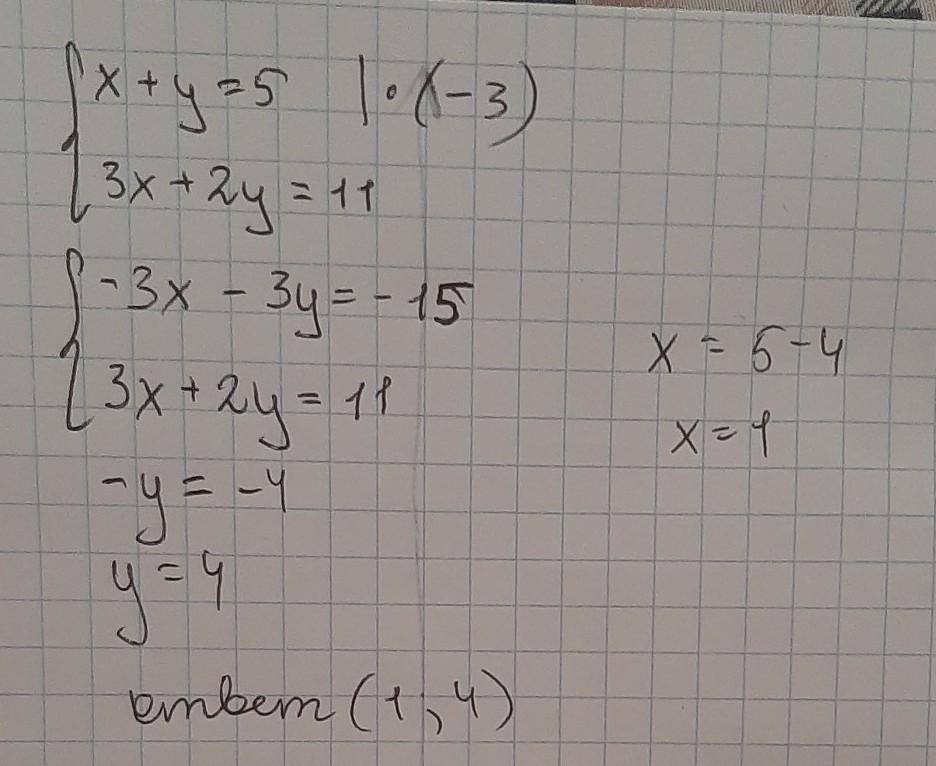 x + y = 5 | · (-3)
3x + 2y = 11
-3x - 3y = -15
3x + 2y = 11
-y = -4
y = 4
x = 5 - 4
x = 1
ответ (1; 4)